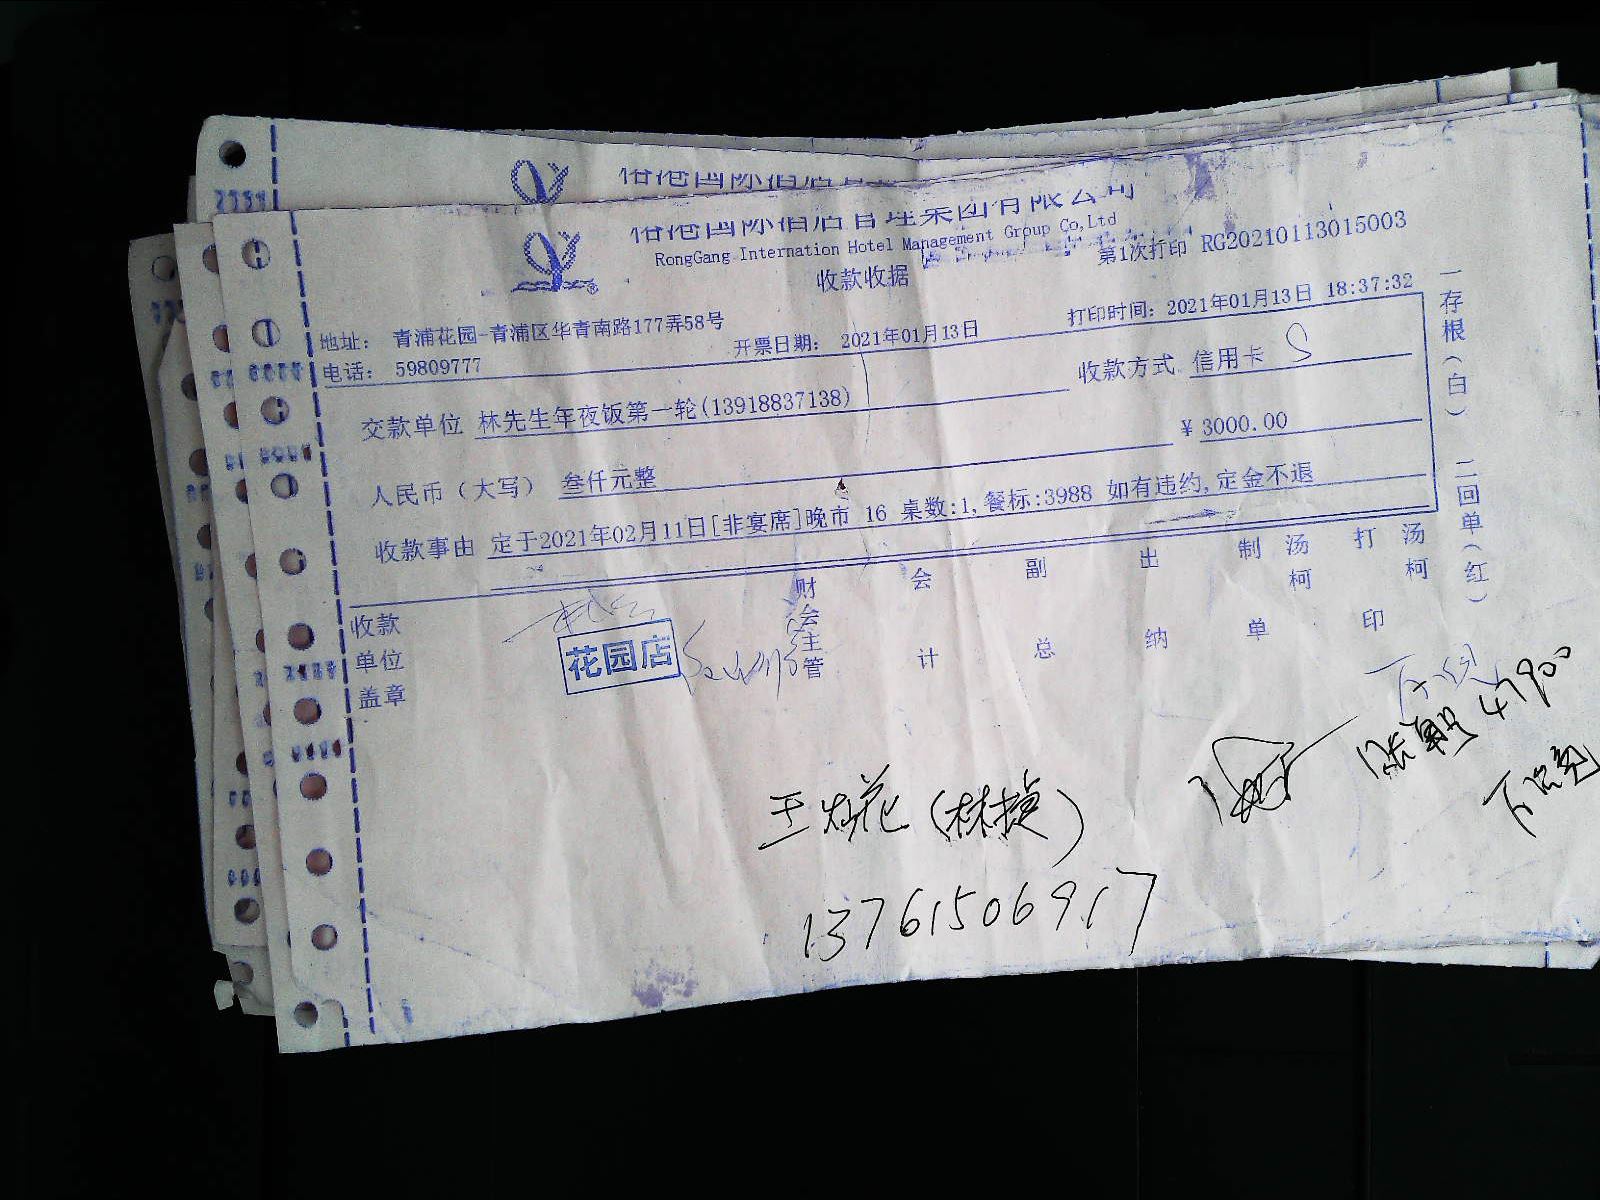 国际酒店管理集团有限公司
RongGang Internation Hotel Management Group Co,Ltd
收款收据
第1次打印 RG20210113015003
地址： 青浦花园-青浦区华青南路177弄58号
电话： 59809777
开票日期： 2021年01月13日
打印时间：2021年01月13日 18:37:32
交款单位 林先生年夜饭第一轮(13918837138)
收款方式 信用卡 S
人民币（大写） 叁仟元整
¥ 3000.00
收款事由 定于2021年02月11日[非宴席]晚市 16 桌数:1,餐标:3988 如有违约,定金不退
一存根（白） 二回单（红）
收款单位盖章
花园店
财会主管
会计
副总
出纳
制单
汤柯
打印
汤柯
47900
13761506917